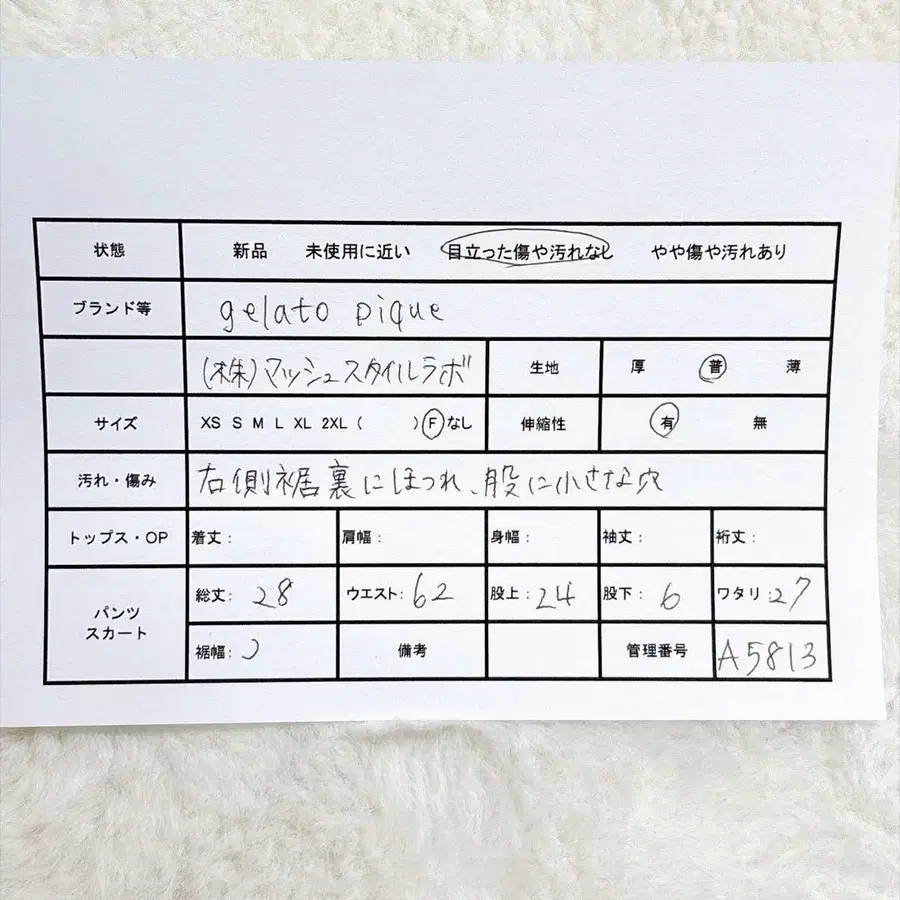 状態 新品 未使用に近い 目立った傷や汚れなし やや傷や汚れあり
ブランド等 gelato pique
(株)マッシュスタイルラボ 生地 厚 普 薄
サイズ XS S M L XL 2XL ( ) F なし 伸縮性 有 無
汚れ・傷み 右側裾裏にほつれ、股に小さな穴
トップス・OP 着丈: 肩幅: 身幅: 袖丈: 裄丈:
パンツ スカート 総丈: 28 ウエスト: 62 股上: 24 股下: 6 ワタリ: 27
裾幅: 備考 管理番号 A5813